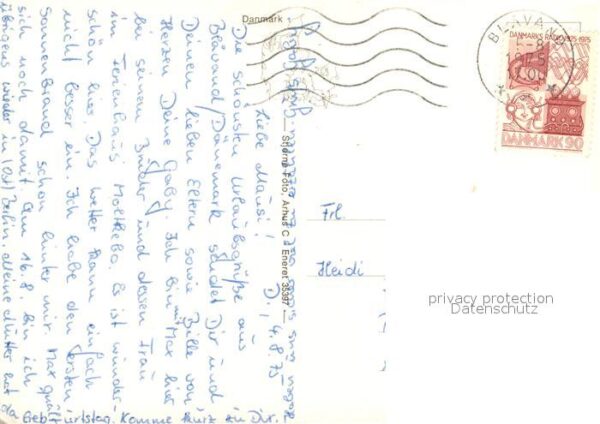 Danmark
Di, 4.8.75
Liebe Mausi!
Die schönsten Urlaubsgrüße aus
Blavand/Dänemark sendet Dir und
Deinen lieben Eltern sowie Bille von
Herzen Deine Gaby. Ich bin mit Max hier
bei seinem Bruder und dessen Frau
im Ferienhaus Moltkebo. Es ist wunder-
schön hier. Das Wetter kann einfach
nicht besser sein. Ich habe den ersten
Sonnenbrand schon hinter mir. Max quält
sich noch damit. Am 16.8. bin ich
übrigens wieder in (Ost) Berlin. Meine Mutter hat da
Geburtstag. Komme kurz zu Dir.
Stjerne-Foto, Århus C Eneret 35397
BLÅVAND
-8
1975
17.00
DANMARKS RADIO 1925-1975
DANMARK 90
Frl.
Heidi
privacy protection
Datenschutz